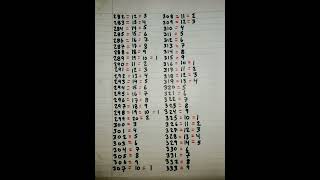 282 = 12 = 3
283 = 13 = 4
284 = 14 = 5
285 = 15 = 6
286 = 16 = 7
287 = 17 = 8
288 = 18 = 9
289 = 19 = 10 = 1
290 = 11 = 2
291 = 12 = 3
292 = 13 = 4
293 = 14 = 5
294 = 15 = 6
295 = 16 = 7
296 = 17 = 8
297 = 18 = 9
298 = 19 = 10 = 1
299 = 20 = 2
300 = 3
301 = 4
302 = 5
303 = 6
304 = 7
305 = 8
306 = 9
307 = 10 = 1
308 = 11 = 2
309 = 12 = 3
310 = 4
311 = 5
312 = 6
313 = 7
314 = 8
315 = 9
316 = 10 = 1
317 = 11 = 2
318 = 12 = 3
319 = 13 = 4
320 = 5
321 = 6
322 = 7
323 = 8
324 = 9
325 = 10 = 1
326 = 11 = 2
327 = 12 = 3
328 = 13 = 4
329 = 14 = 5
330 = 6
331 = 7
332 = 8
333 = 9